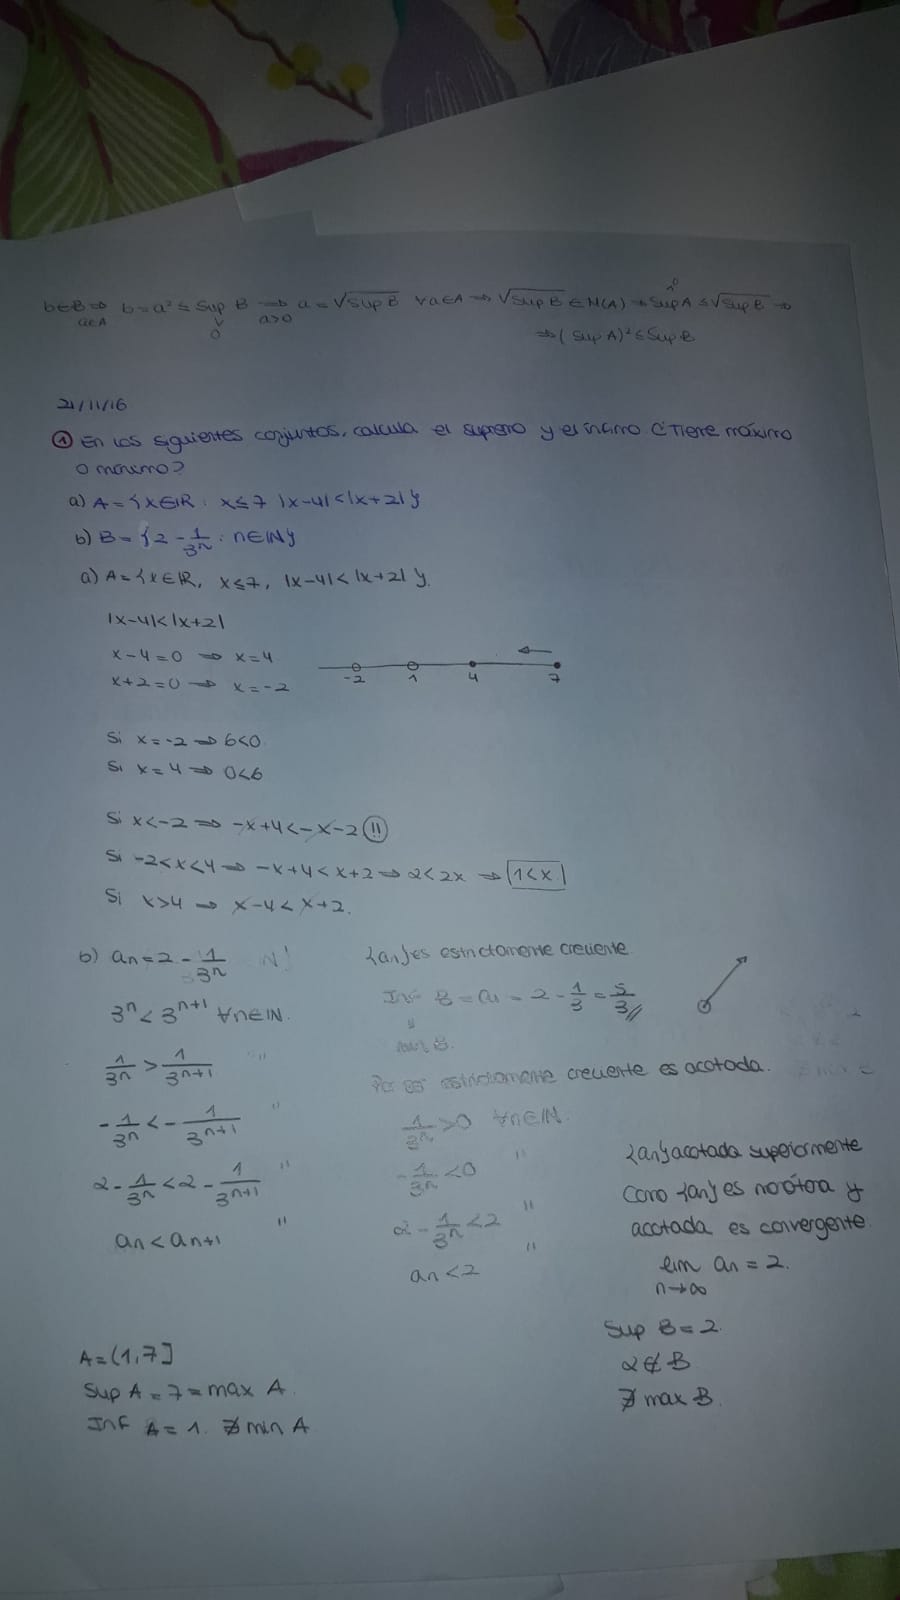 b∈B ⇒ b=a² ≤ Sup B ⇒ a = √Sup B ∀a∈A ⇒ √Sup B ∈ M(A) ⇒ Sup A ≤ √Sup B ⇒
a∈A 0 a>0
⇒ (Sup A)² ≤ Sup B
21/11/16
① En los siguientes conjuntos, calcula el supremo y el ínfimo ¿Tiene máximo
o mínimo?
a) A = {x∈ℝ : x≤7 |x-4|<|x+2|}
b) B = {2 - 1/3ⁿ : n∈ℕ}
a) A = {x∈ℝ, x≤7, |x-4|<|x+2|}.
|x-4|<|x+2|
x-4=0 ⇒ x=4
x+2=0 ⇒ x=-2
-2 1 4 7
Si x=-2 ⇒ 6<0
Si x=4 ⇒ 0<6
Si x<-2 ⇒ -x+4<-x-2 (!!)
Si -2<x<4 ⇒ -x+4<x+2 ⇒ 2<2x ⇒ 1<x
Si x>4 ⇒ x-4<x+2.
b) an = 2 - 1/3ⁿ
3ⁿ < 3ⁿ⁺¹ ∀n∈ℕ.
1/3ⁿ > 1/3ⁿ⁺¹ "
-1/3ⁿ < -1/3ⁿ⁺¹ "
2 - 1/3ⁿ < 2 - 1/3ⁿ⁺¹ "
an < an+1 "
{an} es estrictamente creciente
Inf B = a1 = 2 - 1/3 = 5/3 //
"
min B.
es estrictamente creciente es acotada.
1/3ⁿ > 0 ∀n∈ℕ.
-1/3ⁿ < 0 "
2 - 1/3ⁿ < 2 "
an < 2 "
{an} acotada superiormente
Como {an} es monótona y
acotada es convergente.
lim an = 2.
n→∞
Sup B = 2.
2∉B
∄ max B.
A = (1,7]
Sup A = 7 = max A
Inf A = 1. ∄ min A